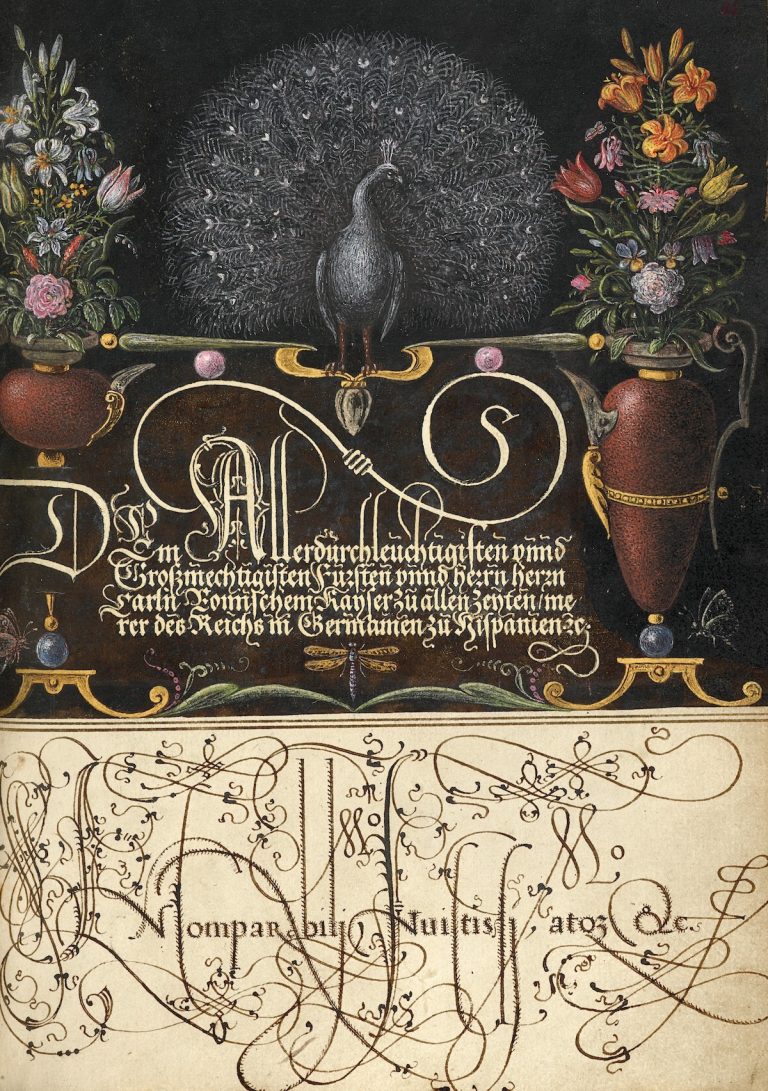 S
Dem Allerdurchleuchtigisten vnnd
Großmechtigisten Fürsten vnnd herrn herrn
Carln Romischem Kayser zu allen Zeyten / me-
rer des Reichs in Germanien zu Hispanien ꝛc.
Mo Mo
omparabili Nuictiss atoꝛ &c.